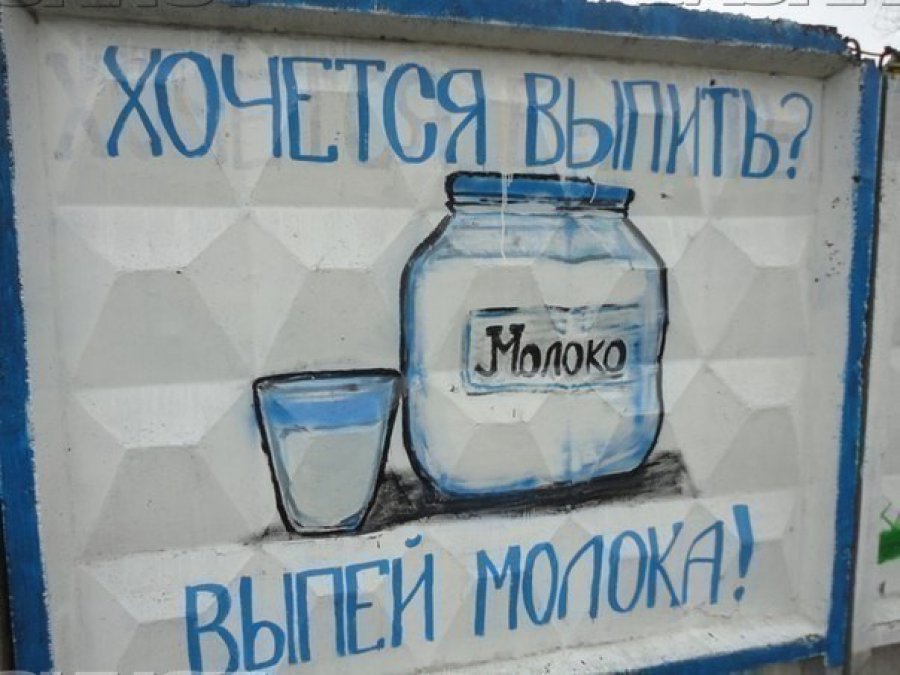 ХОЧЕТСЯ ВЫПИТЬ?
Молоко
ВЫПЕЙ МОЛОКА!